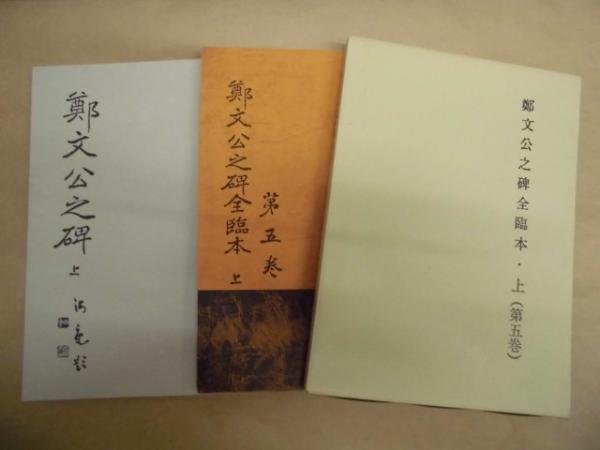 鄭文公之碑
上
鄭文公之碑全臨本
上
第五巻
鄭文公之碑全臨本・上(第五巻)